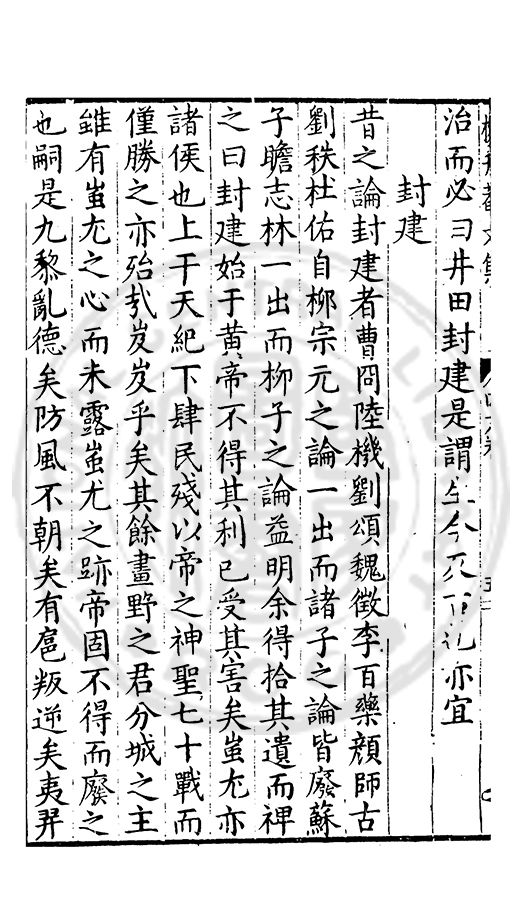 治而必曰井田封建是謂生今反古亦宜
封建
昔之論封建者曹冏陸機劉頌魏徵李百藥顏師古
劉秩杜佑自柳宗元之論一出而諸子之論皆廢蘇
子瞻志林一出而柳子之論益明余得拾其遺而裨
之曰封建始于黃帝不得其利已受其害矣蚩尤亦
諸侯也上干天紀下肆民殘以帝之神聖七十戰而
僅勝之亦殆哉岌岌乎矣其餘畫野之君分城之主
雖有蚩尤之心而未露蚩尤之跡帝固不得而廢之
也嗣是九黎亂德矣防風不朝矣有扈叛逆矣夷羿